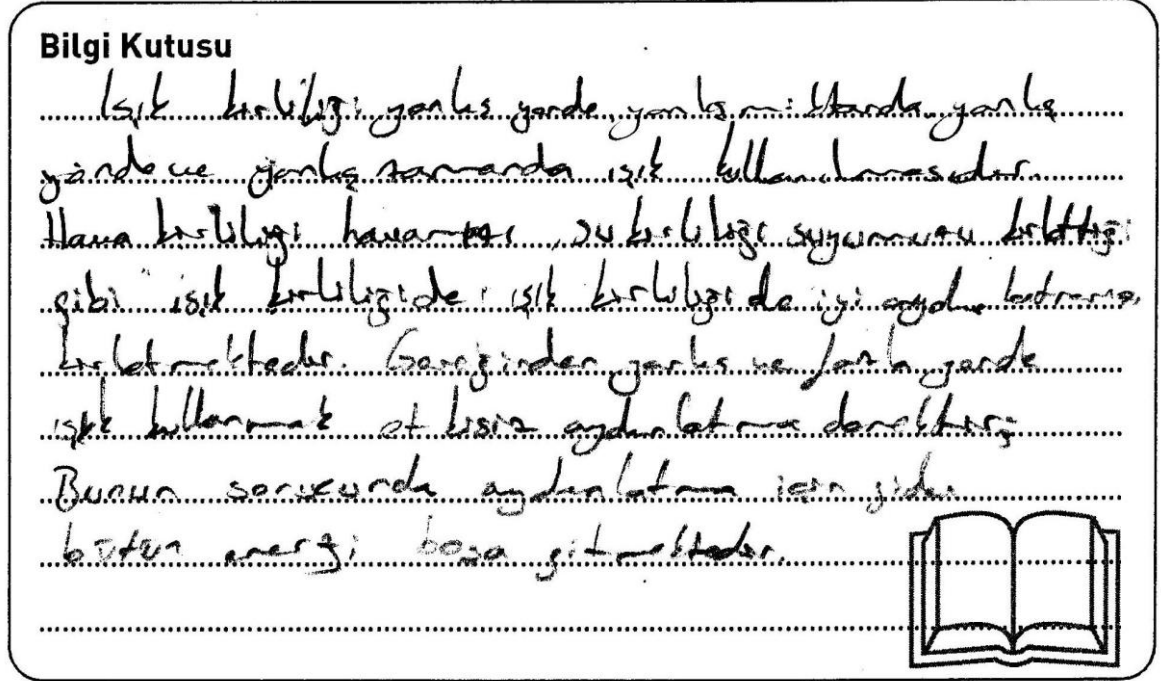 Bilgi Kutusu
Işık kirliliği yanlış yerde, yanlış miktarda yanlış
yönde ve yanlış zamanda ışık kullanılmasıdır.
Hava kirliliği havamızı, su kirliliği suyumuzu kirlettiği
gibi ışık kirliliği de ışık kirliliği de iyi aydınlatmamı
kirletmektedir. Gereğinden yanlış ve fazla yerde
ışık kullanmak etkisiz aydınlatma demektir;
Bunun sonucunda aydınlatma için giden
bütün enerji boşa gitmektedir.